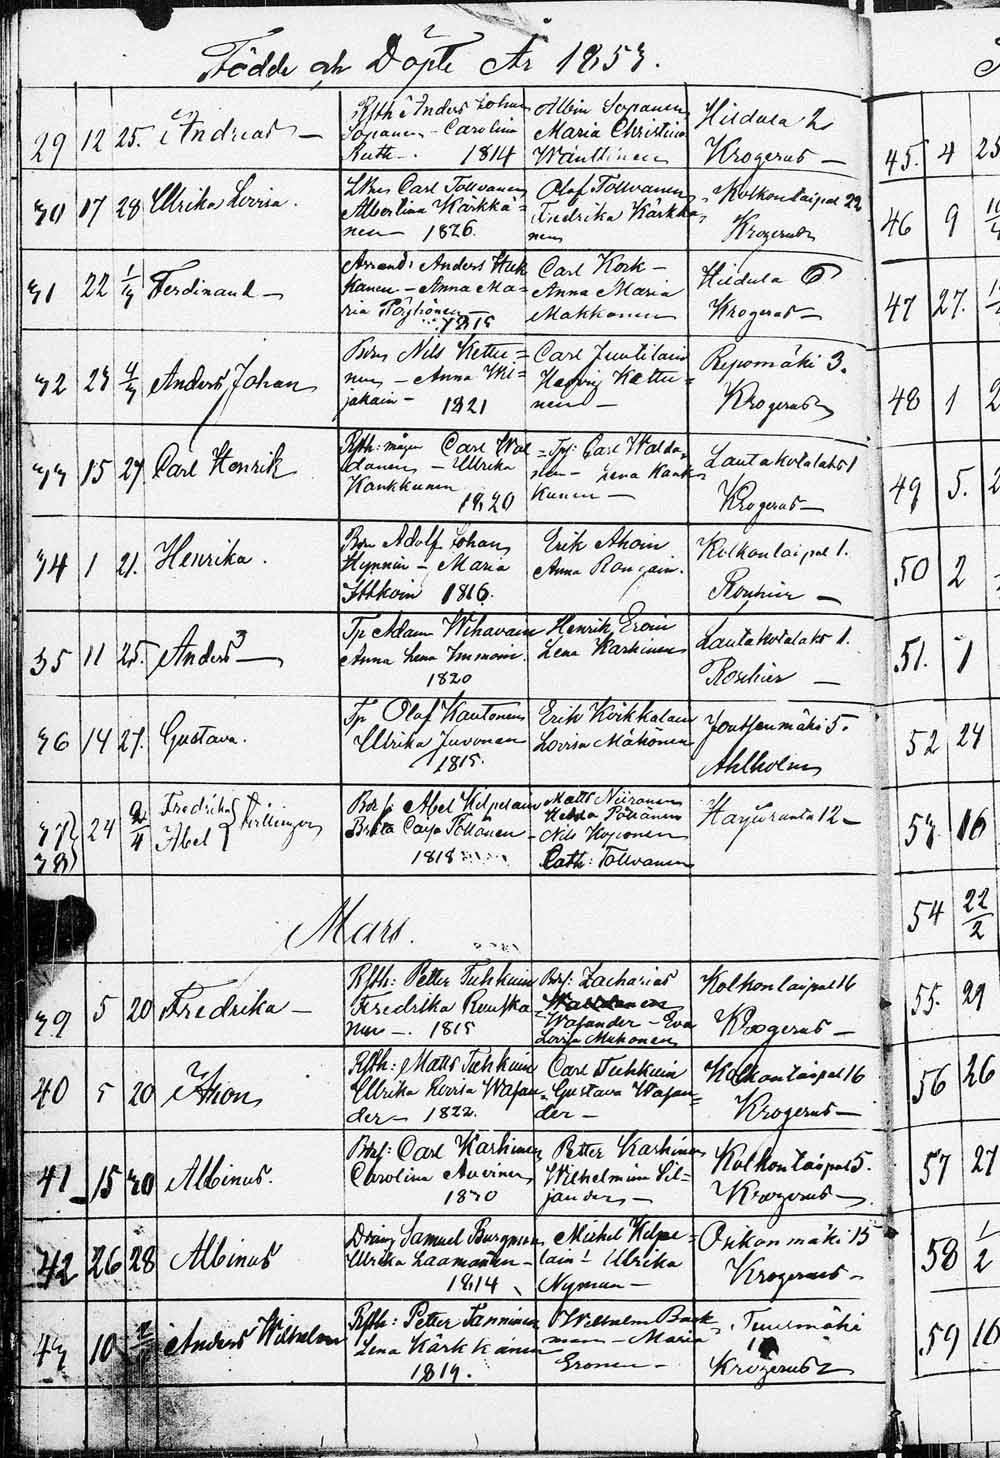 Födde och Döpte År 1853.
29 12 25. Andreas — Rsth Anders Johan Sopanen - Carolina Ruth — 1814 Albin Sopanen Maria Christina Wänttinen Hiidula 2 Krogerus —
30 17 28 Ulrika Lovisa. Carl Tollvanen Albertina Kärkkä= nen — 1826. Olof Tollvanen Fredrika Kärkkä nen Kolkonlaipal 22 Krogerus
31 22 1/3 Ferdinand — Arrend: Anders Huk kanen — Anna Ma= ria Pöyhönen — 1815 Carl Kork — Anna Maria Makkonen Hiidula 6 Krogerus —
32 23 4/3 Anders Johan Nils Kettu= nen — Anna Mi= jakain — 1821 Carl Juutilain Hedvig Kettu= nen — Repomäki 3. Krogerus
33 15 27 Carl Henrik Rsth: måg Carl Wal danen — Ulrika Kankkunen 1820 Carl Walda= nen — Lena Kank kunen — Lautakotalaks 1 Krogerus —
34 1 21. Henrika. Adolf Johan Hynnin — Maria Ihlkoin 1816. Erik Ahoin Anna Rongain. Kolkonlaipal 1. Roschier —
35 11 25. Anders — Tp Adam Wihavain Anna Lena Immoin. 1820 Henrik Eroin Lena Karhinen Lautakotalaks 1. Roschier —
36 14 27. Gustava. Tp Olof Kautonen Ulrika Juvonen 1815. Erik Koikkalain Lovisa Mähönen Joutsenmäki 5. Ahlholm
37 38 24 2/4 Fredrika Abel Tvillingar Abel Kilpelain Britta Caisa Pöllänen 1818 Matts Niiranen Hedda Pöllänen Nils Koponen Cath: Tollvanen Hayuranta 12 —
Mars.
39 5 20 Fredrika — Rsth: Petter Tuhkuin Fredrika Ruuska= nen —. 1815 Zacharias Wasander — Eva Lovisa Muhonen Kolkonlaipal 16 Krogerus —
40 5 20 Rsth: Matts Tuhkuin Ulrika Lovisa Wasan= der — 1822. Carl Tuhkuin Gustava Wasan= der — Kolkonlaipal 16 Krogerus —
41 15 30 Albinus. Carl Karhinen Carolina Auvinen 1830 Petter Karhinen Wilhelmina Sil= jander — Kolkonlaipal 5. Krogerus —
42 26 28 Albinus Dräng Samuel Burgman Ulrika Laamanen — 1814 Michel Kilpe= lain — Ulrika Nyman — Oikonmäki 15 Krogerus —
43 10 Anders Wilhelm Rsth: Petter Tanninen Lena Kärkkäinen 1819. Wilhelm Back man — Maria Eronen — Tuusmäki Krogerus
45. 4 25
46 9
47 27.
48 1 2
49 5. 2
50 2
51. 1
52 24
53 16
54 22/2
55. 29
56 26
57 27
58 1/2
59 16